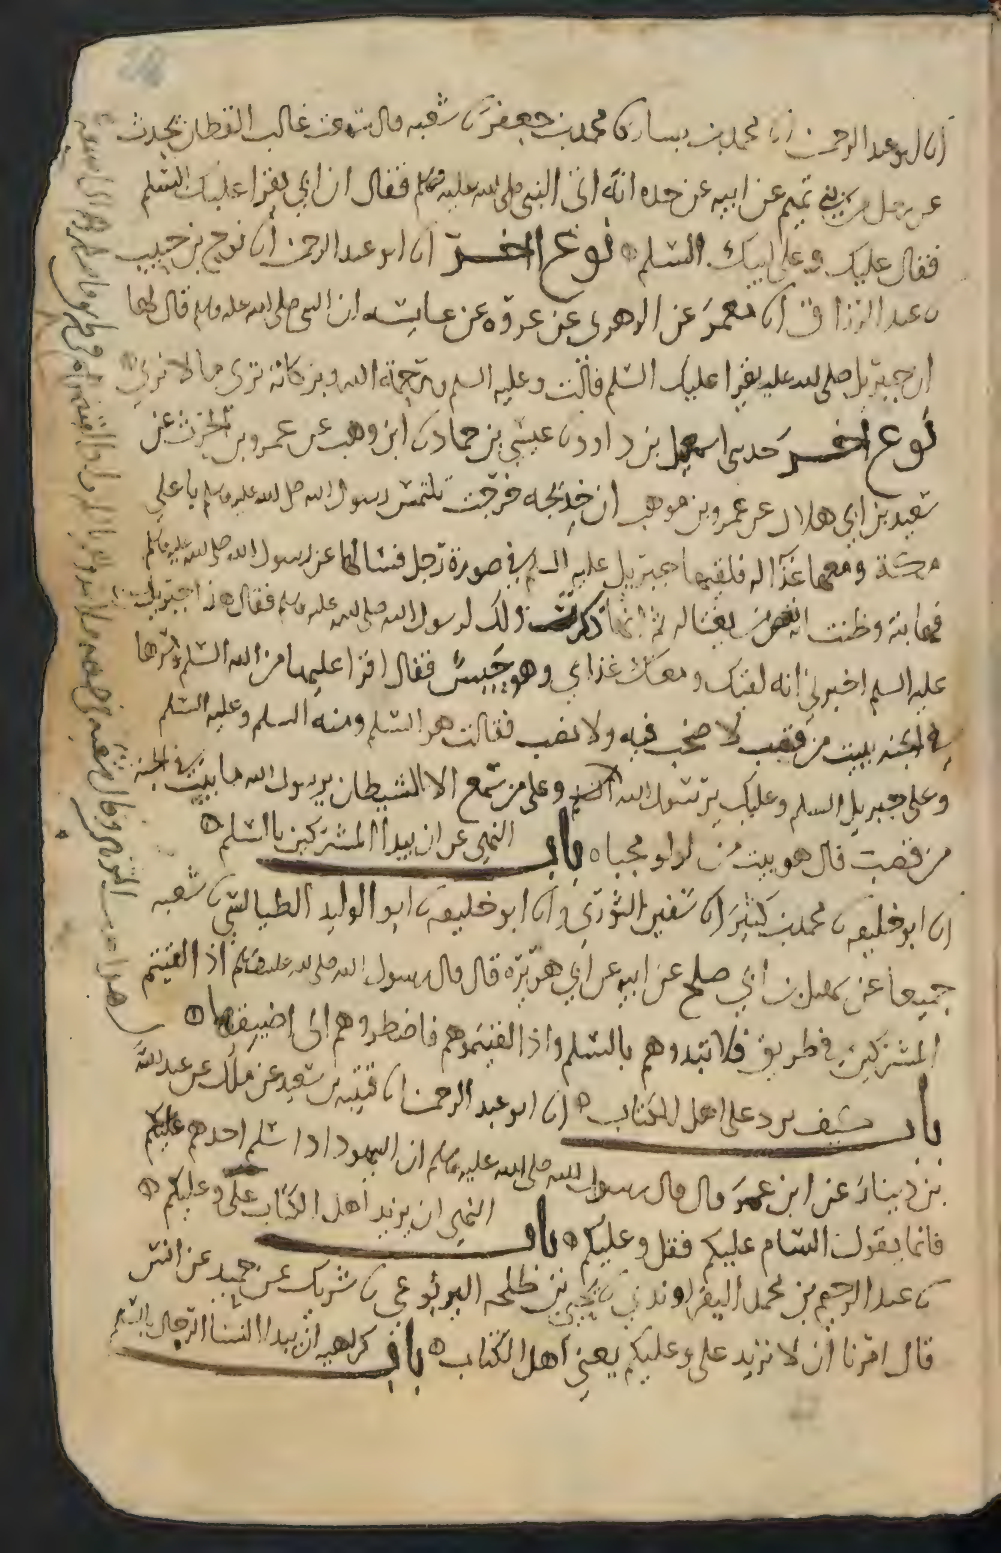 انا ابو عبد الرحمن انا محمد بن بسار نا محمد بن جعفر نا شعبه قال سمعت غالب القطان يحدث
عن رجل من بني تميم عن ابيه عن جده انه اتى النبي صلى الله عليه وسلم فقال ان ابي يقرا عليك السلم
فقال عليك وعلى ابيك السلم نوع اخر انا ابو عبد الرحمن انا نوح بن حبيب
نا عبد الرزاق انا معمر عن الزهري عن عروه عن عايشه ان النبي صلى الله عليه وسلم قال لها
ان جبريل صلى الله عليه يقرا عليك السلم قالت وعليه السلم ورحمة الله وبركاته ترى ما لا نرى
نوع اخر حدثني اسمعيل بن داود نا عيسى بن حماد نا ابن وهب عن عمرو بن الحرث عن
سعيد بن ابي هلال عن عمرو بن موهب ان خديجه خرجت تلتمس رسول الله صلى الله عليه وسلم باعلى
مكة ومعها غذا له فلقيها جبريل عليه السلم في صورة رجل فسالها عن رسول الله صلى الله عليه وسلم
فهابته وظنت انه بعض من يغتاله ثم انها ذكرت ذلك لرسول الله صلى الله عليه وسلم فقال هذا جبريل
عليه السلم اخبرني انه لقيك ومعك غذاي وهو حيس فقال اقرا عليها من الله السلم وبشرها
في الجنه ببيت من قصب لا صخب فيه ولا نصب فقالت هو السلم ومنه السلم وعليه السلم
وعلى جبريل السلم وعليك يرسول الله السلم وعلى من سمع الا الشيطان يرسول الله ما بيت في الجنة
من قصب قال هو بيت من لولو مجباه باب النهي عن ان يبدا المشركين بالسلم
انا ابو خليفه نا محمد بن كثير انا سفين الثوري وانا ابو خليفه نا ابو الوليد الطيالسي نا شعبه
جميعا عن سهيل بن ابي صلح عن ابيه عن ابي هريره قال قال رسول الله صلى الله عليه وسلم اذا لقيتم
المشركين في طريق فلا تبدوهم بالسلم واذا لقيتموهم فاضطروهم الى اضيقها
باب كيف يرد على اهل الكتاب انا ابو عبد الرحمن انا قتيبه بن سعيد عن ملك عن عبد الله
بن دينار عن ابن عمر قال قال رسول الله صلى الله عليه وسلم ان اليهود اذا سلم احدهم عليكم
فانما يقول السام عليكم فقل وعليكم باب النهي ان يزيد اهل الكتاب على وعليكم
نا عبد الرحيم بن محمد نا يحيى بن طلحه اليربوعي نا شريك عن حميد عن انس
قال امرنا ان لا نزيد على وعليكم يعني اهل الكتاب باب كراهيه ان يبدا النسا الرجال بالسلم